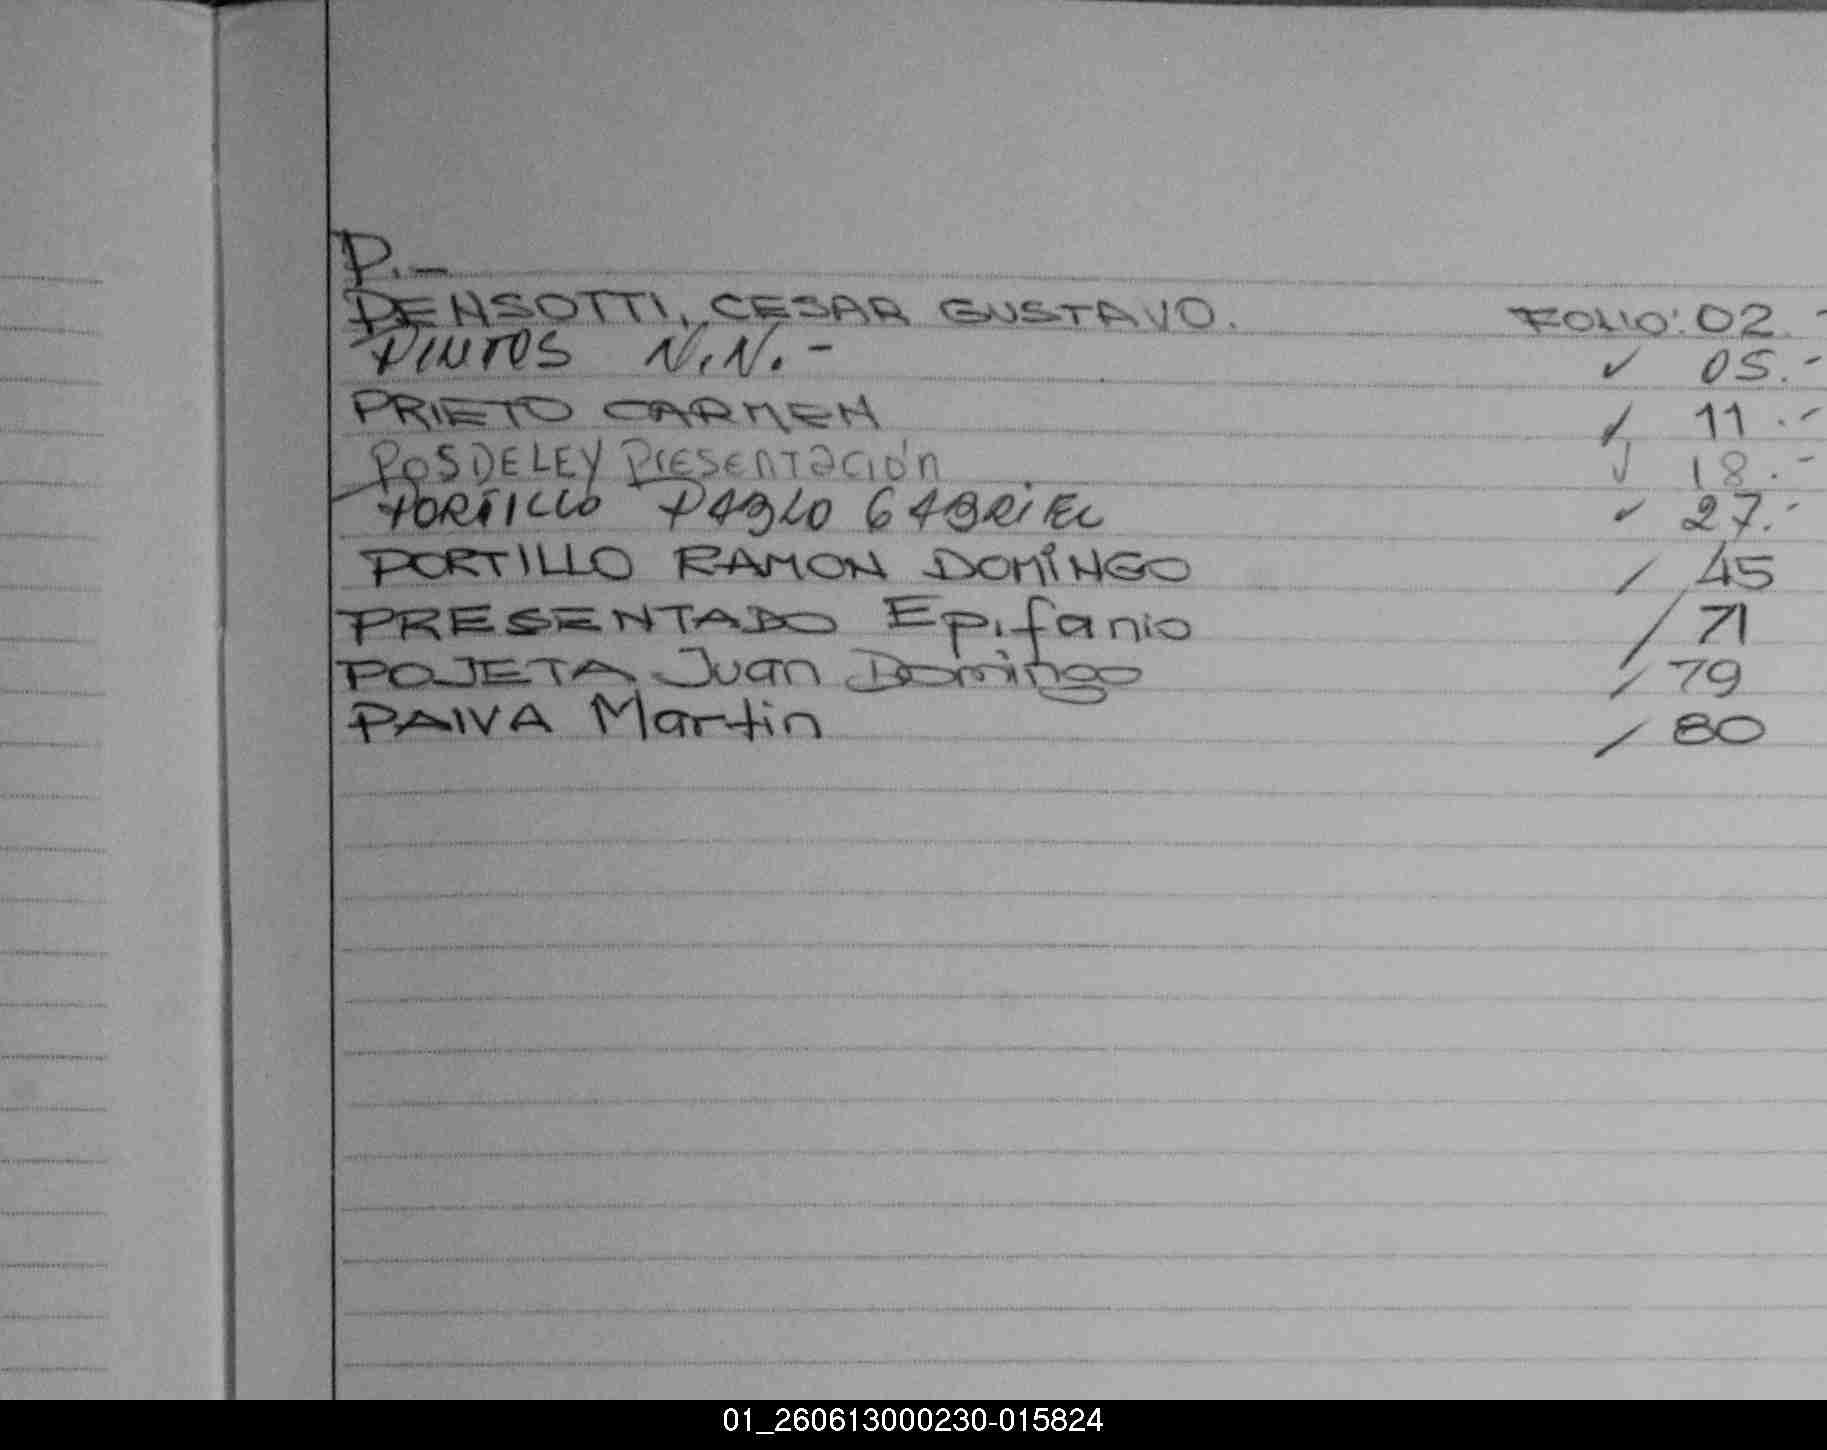 P.-
PENSOTTI, CESAR GUSTAVO. FOLIO: 02.-
PINTOS N.N.- ✓ 05.-
PRIETO CARMEN ✓ 11.-
POSDELEY PresentaciÓn ✓ 18.-
PORTILLO PABLO GABRIEL ✓ 27.-
PORTILLO RAMON DOMINGO / 45
PRESENTADO Epifanio / 71
POJETA Juan Domingo / 79
PAIVA Martin / 80
01_260613000230-015824